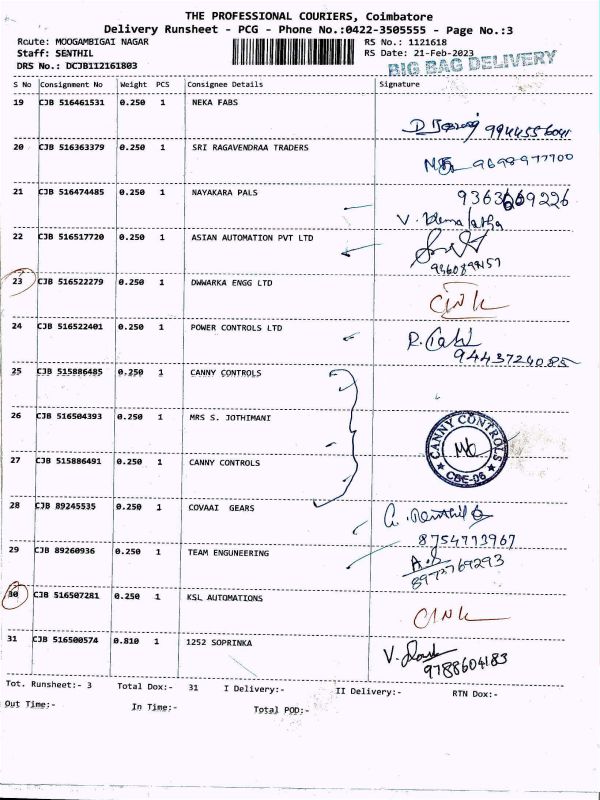 THE PROFESSIONAL COURIERS, Coimbatore
Delivery Runsheet - PCG - Phone No.:0422-3505555 - Page No.:3
Route: MOOGAMBIGAI NAGAR
RS No.: 1121618
Staff: SENTHIL
RS Date: 21-Feb-2023
DRS No.: DCJB112161803
BIG BAG DELIVERY
S No Consignment No Weight PCS Consignee Details Signature
19 CJB 516461531 0.250 1 NEKA FABS
9944556041
20 CJB 516363379 0.250 1 SRI RAGAVENDRAA TRADERS
9698977700
21 CJB 516474485 0.250 1 NAYAKARA PALS
V. Hema latha
22 CJB 516517720 0.250 1 ASIAN AUTOMATION PVT LTD
23 CJB 516522279 0.250 1 DWWARKA ENGG LTD
24 CJB 516522401 0.250 1 POWER CONTROLS LTD
9443724085
25 CJB 515886485 0.250 1 CANNY CONTROLS
26 CJB 516504393 0.250 1 MRS S. JOTHIMANI
CANNY CONTROLS
CBE-06
27 CJB 515886491 0.250 1 CANNY CONTROLS
28 CJB 89245535 0.250 1 COVAAI GEARS
8754773967
29 CJB 89260936 0.250 1 TEAM ENGUNEERING
8973769293
30 CJB 516507281 0.250 1 KSL AUTOMATIONS
31 CJB 516500574 0.810 1 1252 SOPRINKA
9788604183
Tot. Runsheet:- 3 Total Dox:- 31 I Delivery:- II Delivery:- RTN Dox:-
Out Time:- In Time:- Total POD:-